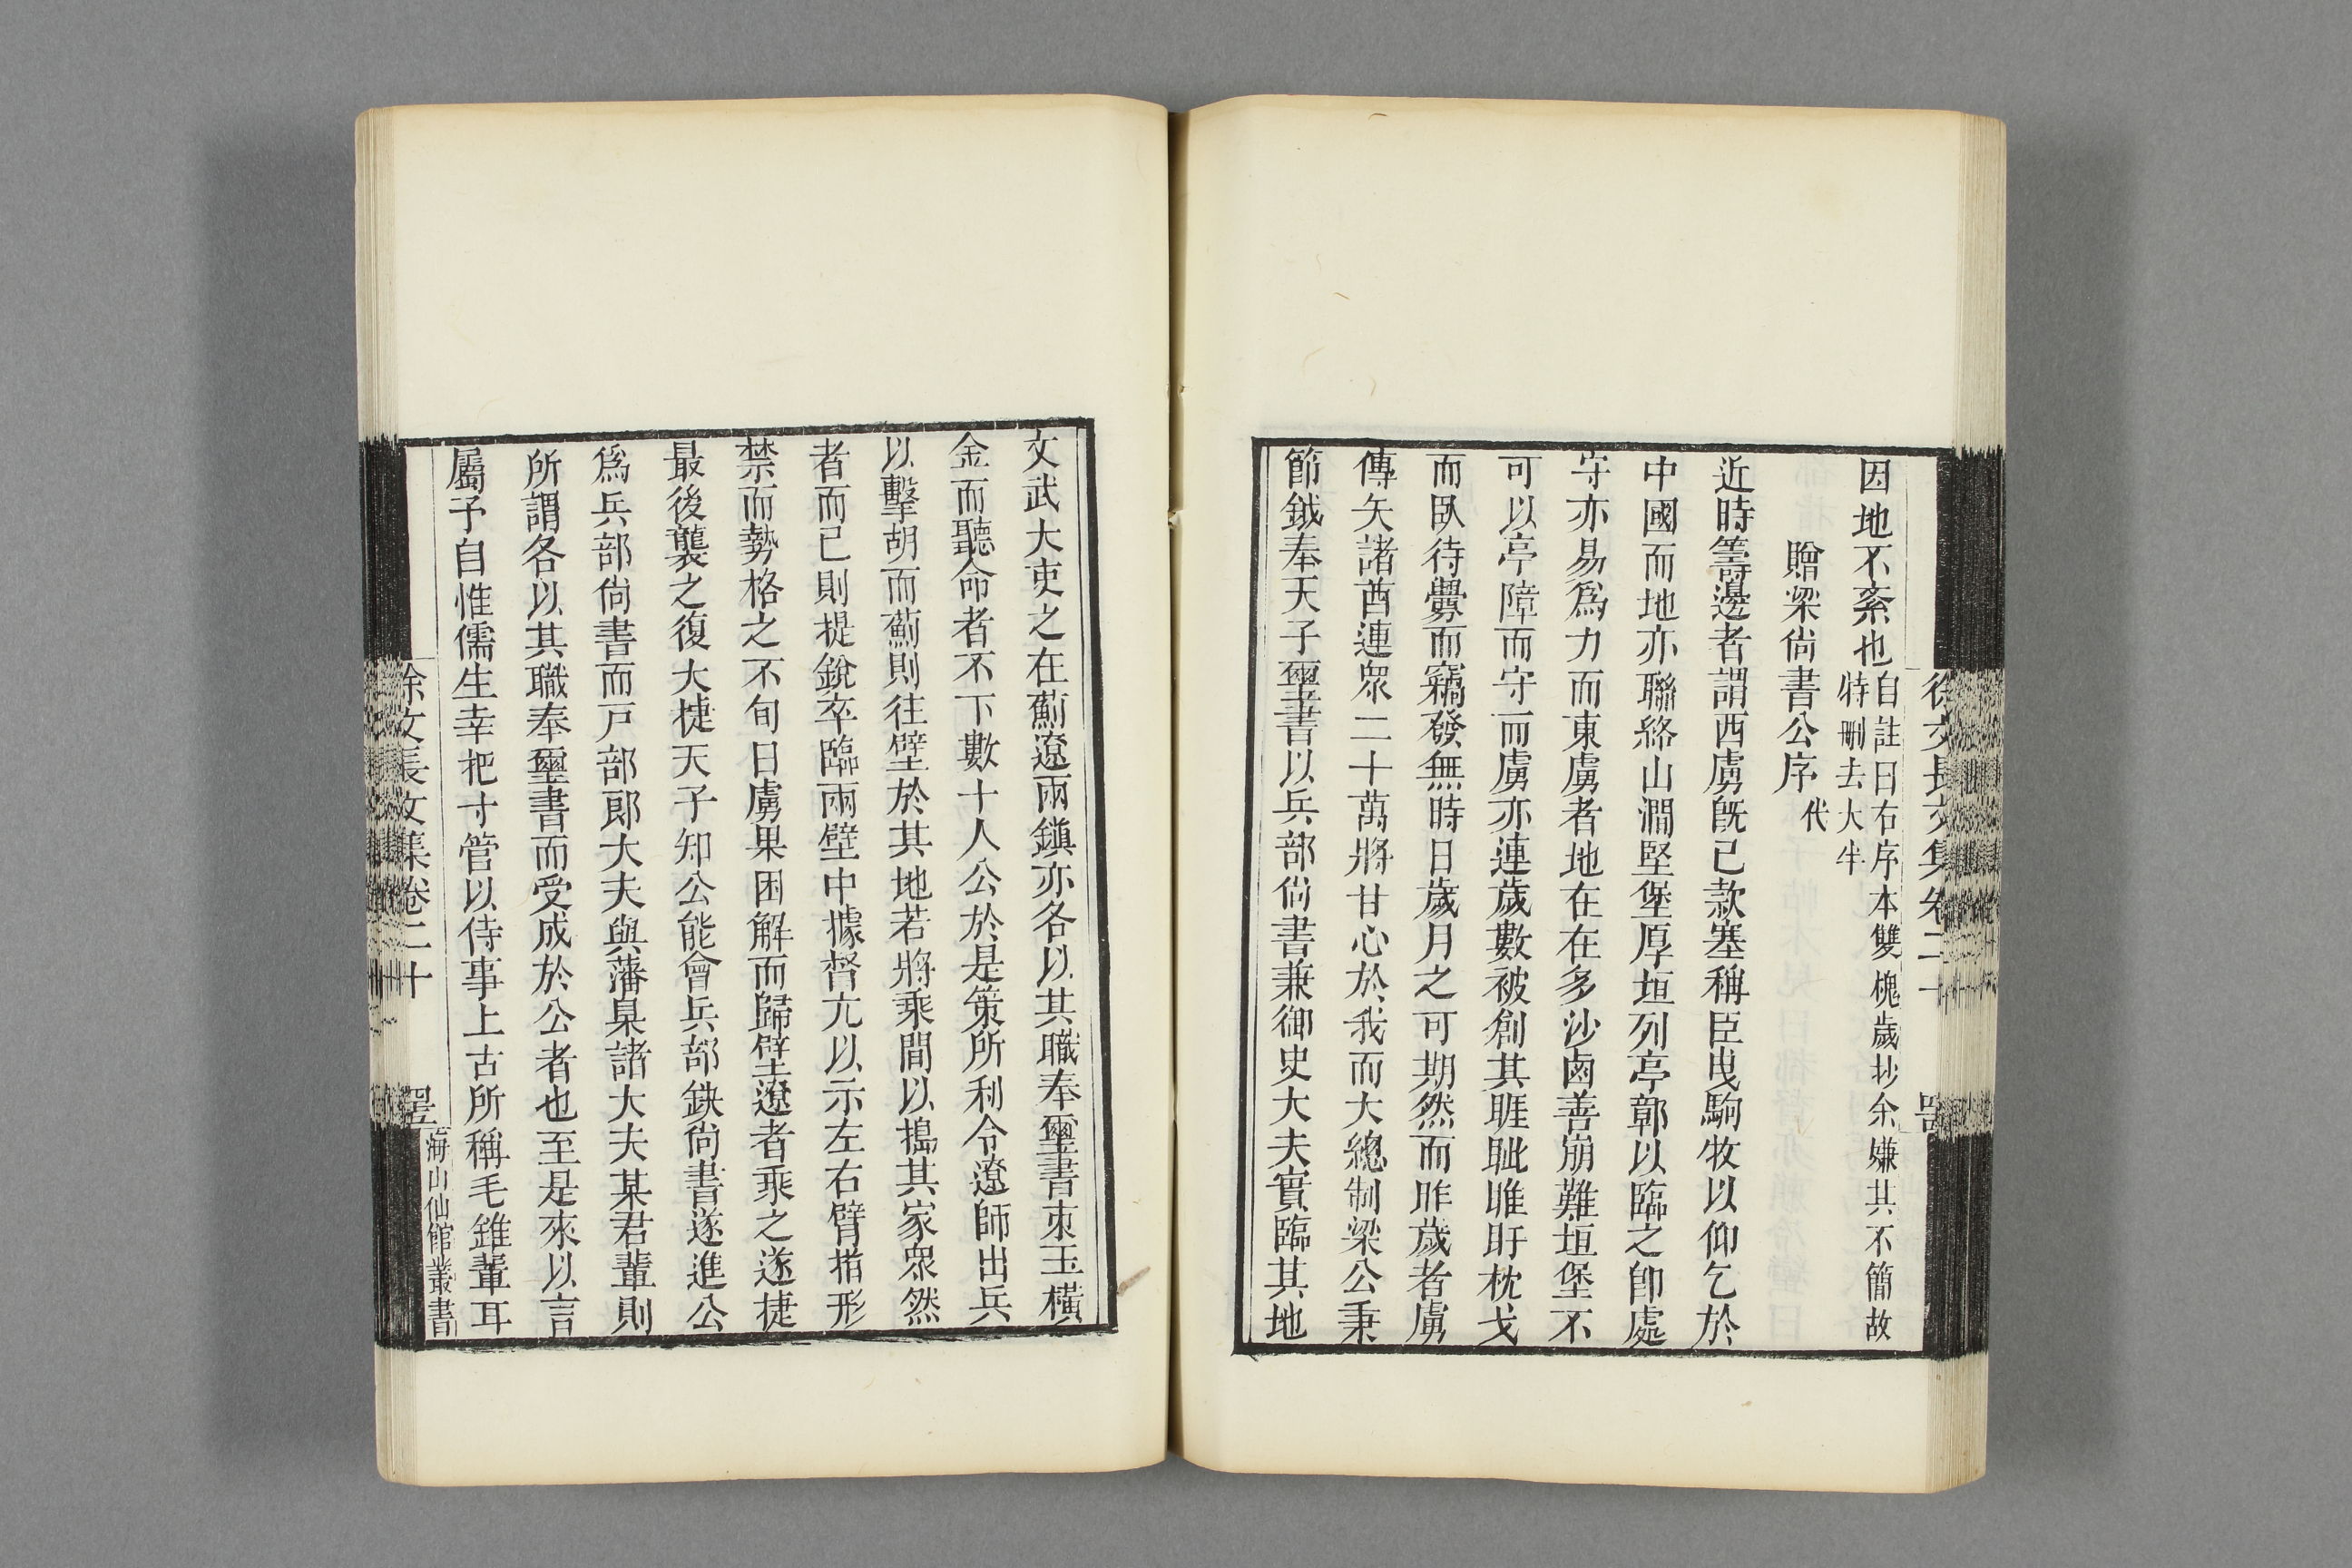 徐文長文集卷二十
因地不紊也自註曰右序本雙槐歲抄余嫌其不簡故
特刪去大半
贈梁尙書公序代
近時籌邊者謂西虜旣已款塞稱臣曳駒牧以仰乞於
中國而地亦聯絡山澗堅堡厚垣列亭鄣以臨之卽處
守亦易爲力而東虜者地在在多沙鹵善崩難垣堡不
可以亭障而守而虜亦連歲數被創其睚眦睢盱枕戈
而臥待釁而竊發無時日歲月之可期然而昨歲者虜
傳矢諸酋連衆二十萬將甘心於我而大總制梁公秉
節鉞奉天子璽書以兵部尙書兼御史大夫實臨其地
文武大吏之在薊遼兩鎮亦各以其職奉璽書束玉橫
金而聽命者不下數十人公於是策所利令遼師出兵
以擊胡而薊則往壁於其地若將乘間以搗其家衆然
者而已則提銳卒臨兩壁中據督亢以示左右臂指形
禁而勢格之不旬日虜果困解而歸壁遼者乘之遂捷
最後襲之復大捷天子知公能會兵部缺尙書遂進公
爲兵部尙書而戸部郞大夫與藩臬諸大夫某君輩則
所謂各以其職奉璽書而受成於公者也至是來以言
屬予自惟儒生幸把寸管以侍事上古所稱毛錐輩耳
徐文長文集卷二十
海山仙館叢書